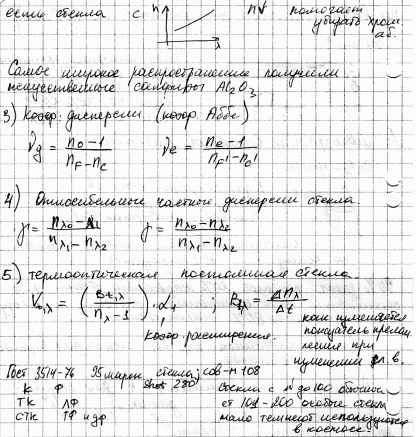 если стекла с n λ n√ помогает
убирать хром.
аб.
Самое широкое распространение получили
искусственные сапфиры Al₂O₃
3) Коэф. дисперсии (коэф. Аббе)
νd = (nD − 1)/(nF − nC) νe = (ne − 1)/(nF' − nC')
4) Относительные частные дисперсии стекла
γ = (nλ0 − λ1)/(nλ1 − nλ2) γ = (nλ0 − nλ2)/(nλ1 − nλ2)
5) термооптическая постоянная стекла.
Vt,λ = (Bt,λ/(nλ − 1)) · α1 ; Bt,λ = Δnλ/Δt
коэф. расширения.
как изменяется
показатель прелом
ления при
изменении дл. в.
Гост 3514-76 95 марок стекла; сов-м 108
К Ф
ТК ЛФ
СТК ТФ и др
стекла с № до 100 обычные
от 101-200 особые стекла
мало темнеют используются
в космосе